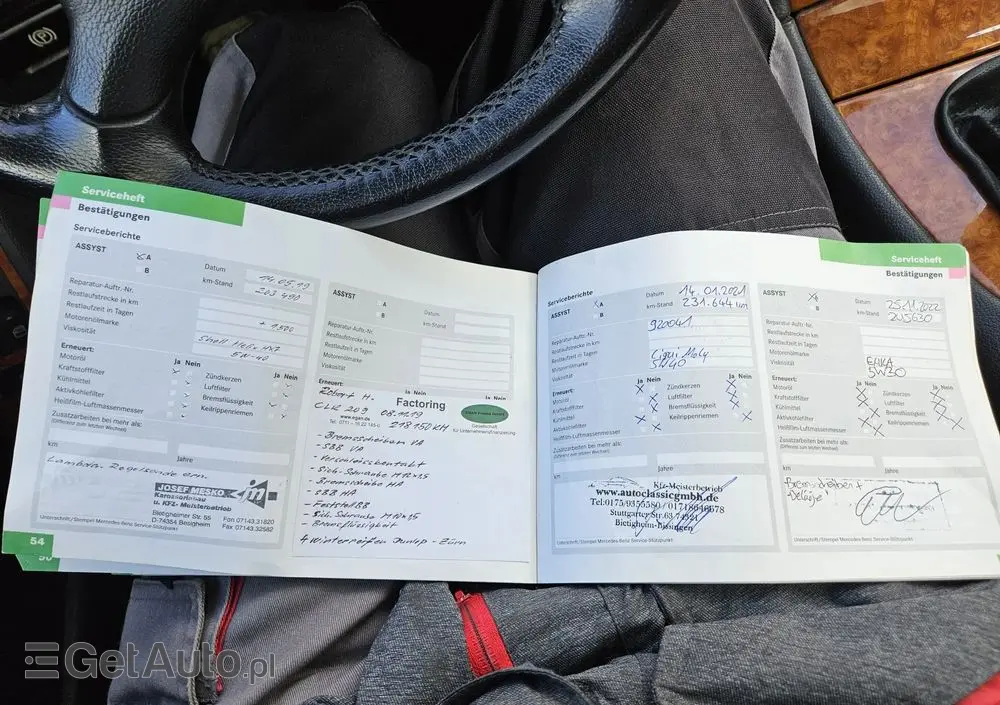 Serviceheft
Bestätigungen
Serviceberichte
ASSYST
A
B
Datum 14.05.19
km-Stand 203 490
Reparatur-Auftr.-Nr.
Restlaufstrecke in km
Restlaufzeit in Tagen + 1500
Motorenölmarke Shell Helix HX7
Viskosität 5W-40
Erneuert:
Ja Nein
Ja Nein
Motoröl
Kraftstofffilter
Kühlmittel
Aktivkohlefilter
Heißfilm-Luftmassenmesser
Zündkerzen
Luftfilter
Bremsflüssigkeit
Keilrippenriemen
Zusatzarbeiten bei mehr als:
(Differenz zum letzten Wechsel)
km
Jahre
Lambda Regelsonde ern.
JOSEF MESKO
Karosseriebau
u. KFZ- Meisterbetrieb
Bietigheimer Str. 55
D-74354 Besigheim
Fon 07143.31820
Fax 07143.32582
Unterschrift/Stempel Mercedes-Benz Service-Stützpunkt
54
ASSYST
A
B
Datum
km-Stand
Reparatur-Auftr.-Nr.
Restlaufstrecke in km
Restlaufzeit in Tagen
Motorenölmarke
Viskosität
Erneuert:
Ja Nein
Ja Nein
Robert H.
CLK 209 08.11.19
218 150 KM
Factoring
Gesellschaft
für Unternehmensfinanzierung
- Bremsscheiben VA
- SBB VA
- Verschleisskontakt
- Sich.-Schraube M12x1,5
- Bremsscheibe HA
- SBB HA
- Feststell BB
- Sich. Schraube M12x1,5
- Bremsflüssigkeit
4 Winterreifen Dunlop - Zürn
Serviceheft
Bestätigungen
Serviceberichte
ASSYST
A
B
Datum 14.01.2021
km-Stand 231.644 km
Reparatur-Auftr.-Nr. 920041
Restlaufstrecke in km
Restlaufzeit in Tagen
Motorenölmarke Liqui Moly
Viskosität 5W40
Erneuert:
Ja Nein
Ja Nein
Motoröl
Kraftstofffilter
Kühlmittel
Aktivkohlefilter
Heißfilm-Luftmassenmesser
Zündkerzen
Luftfilter
Bremsflüssigkeit
Keilrippenriemen
Zusatzarbeiten bei mehr als:
(Differenz zum letzten Wechsel)
km
Jahre
Kfz-Meisterbetrieb
www.autoclassicgmbh.de
Tel.0175/9355580 / 01718646678
Stuttgarter Str.63 74321
Bietigheim-Bissingen
Unterschrift/Stempel Mercedes-Benz Service-Stützpunkt
ASSYST
B
Datum 25.11.2022
km-Stand 245630
Reparatur-Auftr.-Nr.
Restlaufstrecke in km
Restlaufzeit in Tagen
Motorenölmarke
Viskosität 5W30
Erneuert:
Ja Nein
Ja Nein
Motoröl
Kraftstofffilter
Kühlmittel
Aktivkohlefilter
Heißfilm-Luftmassenmesser
Zündkerzen
Luftfilter
Bremsflüssigkeit
Keilrippenriemen
Zusatzarbeiten bei mehr als:
(Differenz zum letzten Wechsel)
km
Jahre
Bremsscheiben +
Beläge
Unterschrift/Stempel Mercedes-Benz Service-Stützpunkt
GetAuto.pl